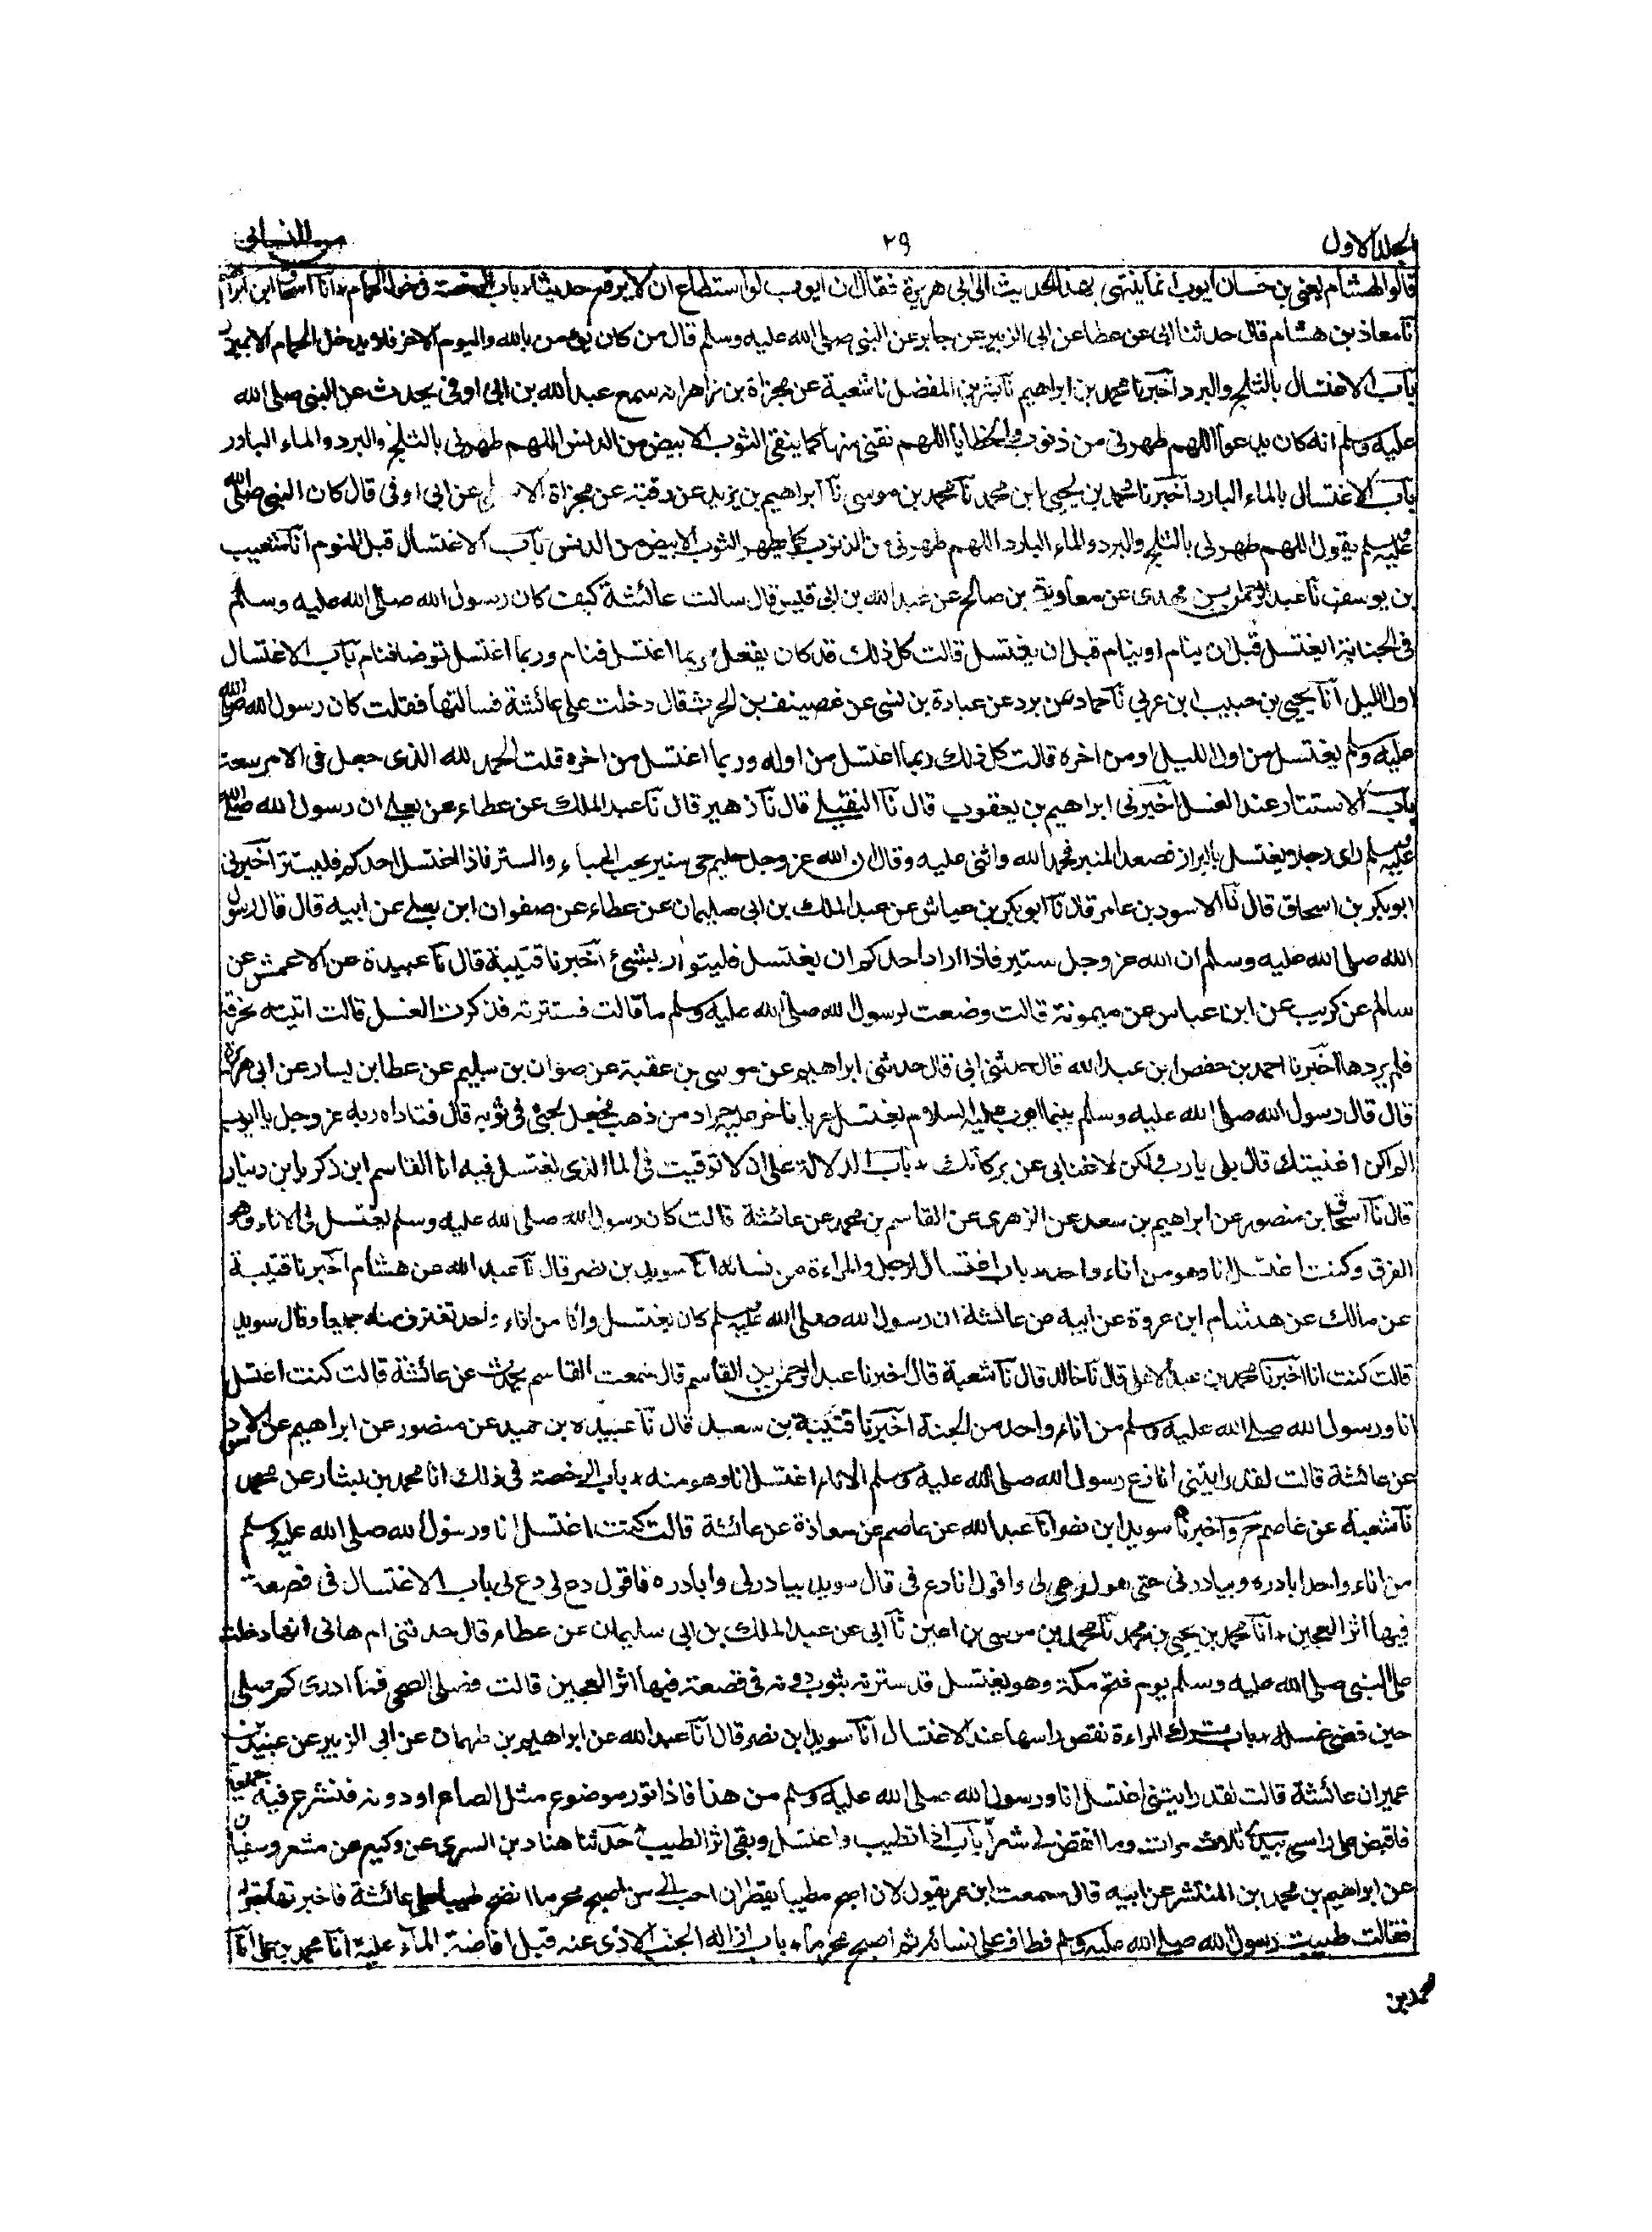 الجلد الاول ٢٩ من النسائى
قالوا لهشام يعنى بن حسان ايوب انما ينتهى بهذا الحديث الى ابى هريرة فقال ان ايوب لو استطاع ان لا يرفع حديثا لم باب الرخصة فى دخول الحمام انا اسحاق ابن ابراهيم
نا معاذ بن هشام قال حدثنا ابى عن عطا عن ابى الزبير عن جابر عن النبى صلى الله عليه وسلم قال من كان يؤمن بالله واليوم الاخر فلا يدخل الحمام الا بميزر
باب الاغتسال بالثلج والبرد اخبرنا محمد بن ابراهيم نا بشر بن المفضل نا شعبة عن مجزاة بن زاهر انه سمع عبد الله بن ابى اوفى يحدث عن النبى صلى الله
عليه وسلم انه كان يدعو اللهم طهرنى من ذنوب والخطايا اللهم نقنى منها كما ينقى الثوب الابيض من الدنس اللهم طهرنى بالثلج والبرد والماء البارد
باب الاغتسال بالماء البارد اخبرنا محمد بن يحيى ابن محمد نا محمد بن موسى نا ابراهيم بن يزيد عن رقبة عن مجزاة عن ابى اوفى قال كان النبى صلى الله
عليه وسلم يقول اللهم طهرنى بالثلج والبرد والماء البارد اللهم طهرنى من الذنوب كما يطهر الثوب الابيض من الدنس باب الاغتسال قبل النوم انا شعيب
بن يوسف نا عبد الرحمن بن مهدى عن معاوية بن صالح عن عبد الله بن ابى قيس قال سالت عائشة كيف كان رسول الله صلى الله عليه وسلم
فى الجنابة ايغتسل قبل ان ينام او ينام قبل ان يغتسل قالت كل ذلك قد كان يفعل ربما اغتسل فنام وربما اغتسل توضا فنام باب الاغتسال
اول الليل انا يحيى بن حبيب ابن عربى نا حماد عن برد عن عبادة بن نسى عن غصينف بن الحرث قال دخلت على عائشة فسالتها فقلت كان رسول الله صلى الله
عليه وسلم يغتسل من اول الليل او من اخره قالت كل ذلك ربما اغتسل من اوله وربما اغتسل من اخره قلت الحمد لله الذى جعل فى الامر سعة
باب الاستتار عند الغسل اخبرنى ابراهيم بن يعقوب قال نا النفيلى قال نا زهير قال نا عبد الملك عن عطاء عن يعلى ان رسول الله صلى الله
عليه وسلم راى رجلا يغتسل بالبراز فصعد المنبر فحمد الله واثنى عليه وقال ان الله عز وجل حليم حى ستير يحب الحياء والستر فاذا اغتسل احدكم فليستتر اخبرنى
ابو بكر بن اسحاق قال نا الاسود بن عامر قال نا ابو بكر بن عياش عن عبد الملك بن ابى سليمان عن عطاء عن صفوان ابن يعلى عن ابيه قال قال رسول
الله صلى الله عليه وسلم ان الله عز وجل ستير فاذا اراد احدكم ان يغتسل فليتوار بشئ اخبرنا قتيبة قال نا عبيدة عن الاعمش عن
سالم عن كريب عن ابن عباس عن ميمونة قالت وضعت لرسول الله صلى الله عليه وسلم ما قالت فسترته فذكرت الغسل قالت اتيته بخرقة
فلم يردها اخبرنا احمد بن حفص ابن عبد الله قال حدثنى ابى قال حدثنى ابراهيم عن موسى بن عقبة عن صوان بن سليم عن عطا بن يسار عن ابى هريرة
قال قال رسول الله صلى الله عليه وسلم بينما ايوب عليه السلام يغتسل عريانا خر عليه جراد من ذهب فجعل يحثى فى ثوبه قال فناداه ربه عز وجل يا ايوب
الم اكن اغنيتك قال بلى يا رب ولكن لا غنا بى عن بركاتك باب الدلالة على ان لا توقيت فى الما الذى يغتسل فيه انا القاسم ابن ذكريا ابن دينار
قال نا اسحاق ابن منصور عن ابراهيم بن سعد عن الزهرى عن القاسم بن محمد عن عائشة قالت كان رسول الله صلى الله عليه وسلم يغتسل فى الاناء وهو
الفرق وكنت اغتسل انا وهو من اناء واحد باب اغتسال الرجل والمراءة من نسائه انا سويد بن نصر قال نا عبد الله عن هشام اخبرنا قتيبة
عن مالك عن هشام ابن عروة عن ابيه عن عائشة ان رسول الله صلى الله عليه وسلم كان يغتسل وانا من اناء واحد نغترف منه جميعا وقال سويد
قالت كنت انا اخبرنا محمد بن عبد الاعلى قال نا خالد قال نا شعبة قال اخبرنا عبد الرحمن بن القاسم قال سمعت القاسم يحدث عن عائشة قالت كنت اغتسل
انا ورسول الله صلى الله عليه وسلم من اناء واحد من الجنة اخبرنا قتيبة بن سعيد قال نا عبيده بن حميد عن منصور عن ابراهيم عن الاسود
عن عائشة قالت لقد رايتنى انازع رسول الله صلى الله عليه وسلم الاناء اغتسل انا وهو منه باب الرخصة فى ذلك انا محمد بن بشار عن محمد
نا شعبة عن عاصم ح واخبرنا سويد ابن نصر انا عبد الله عن عاصم عن معاذة عن عائشة قالت كنت اغتسل انا ورسول الله صلى الله عليه وسلم
من اناء واحد ابادره ويبادرنى حتى يقول دعى لى واقول انا دع لى قال سويد يبادرنى وابادره فاقول دع لى دع لى باب الاغتسال فى قصعة
فيها اثر العجين انا محمد بن يحيى بن محمد نا محمد بن موسى بن اعين نا ابى عن عبد الملك بن ابى سليمان عن عطاء قال حدثتنى ام هانى انها دخلت
على النبى صلى الله عليه وسلم يوم فتح مكة وهو يغتسل قد سترته بثوب دونه فى قصعة فيها اثر العجين قالت فصلى الضحى فما ادرى كم صلى
حين قضى غسله باب ترك المراءة نقص راسها عند الاغتسال انا سويد ابن نصر قال نا عبد الله عن ابراهيم بن طهمان عن ابى الزبير عن عبيد بن
عمير ان عائشة قالت لقد رايتنى اغتسل انا ورسول الله صلى الله عليه وسلم من هذا فاذا تور موضوع مثل الصاع او دونه فنشرع فيه جميعا
فاقبض على راسى بيدى ثلاث مرات وما انقض لى شعرا باب اذا تطيب واغتسل وبقى اثر الطيب حدثنا هناد بن السرى عن وكيع عن مشعر وسفيان
عن ابراهيم بن محمد ابن المنتشر عن ابيه قال سمعت ابن عمر يقول لان اصبح مطيبا بقطران احب الى من اصبح محرما انضح طيبا على عائشة فاخبرتها بقوله
فقالت طيبت رسول الله صلى الله عليه وسلم فطاف على نسائه ثم اصبح محرما باب ازالة الجنب الاذى عنه قبل افاضة الماء عليه انا محمد بن على انا
محمد بن